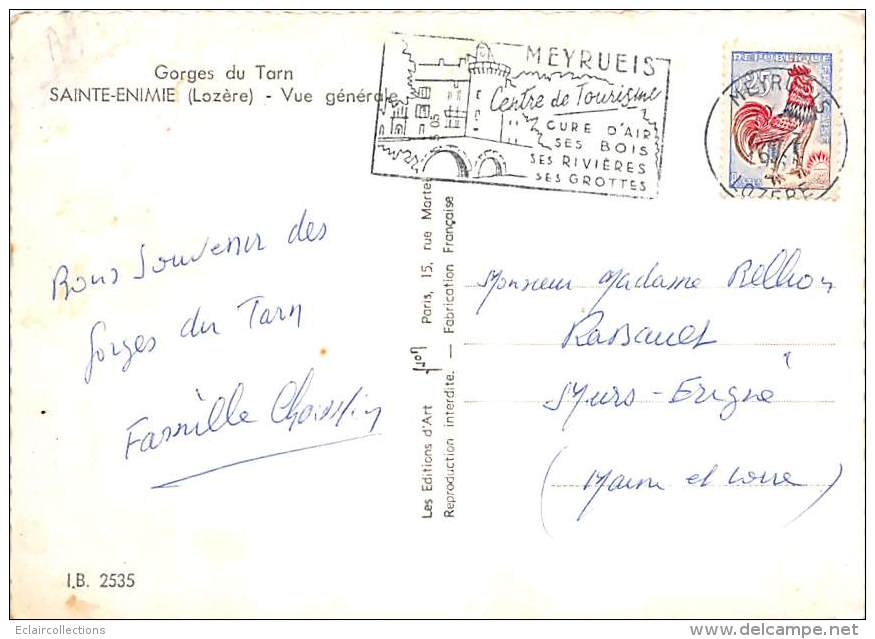 Gorges du Tarn
SAINTE-ENIMIE (Lozère) - Vue générale
MEYRUEIS
Centre de Tourisme
CURE D'AIR
SES BOIS
SES RIVIÈRES
SES GROTTES
MEYRUEIS
LOZERE
Bons Souvenir des
Gorges du Tarn
Famille
Les Editions d'Art Paris, 15, rue
Reproduction interdite. — Fabrication Française
Monsieur Madame
Murs-Erigné
(Maine et Loire)
I.B. 2535
Eclaircollections
www.delcampe.net